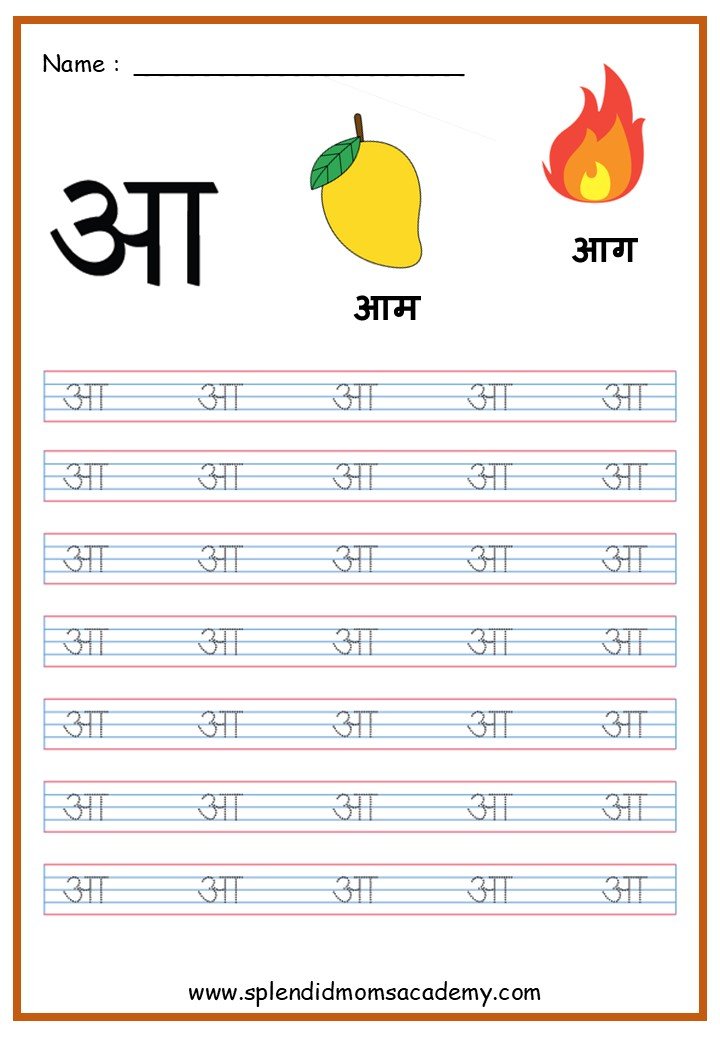 Name : ___________________________
आ
आग
आम
आ आ आ आ आ
आ आ आ आ आ
आ आ आ आ आ
आ आ आ आ आ
आ आ आ आ आ
आ आ आ आ आ
आ आ आ आ आ
www.splendidmomsacademy.com